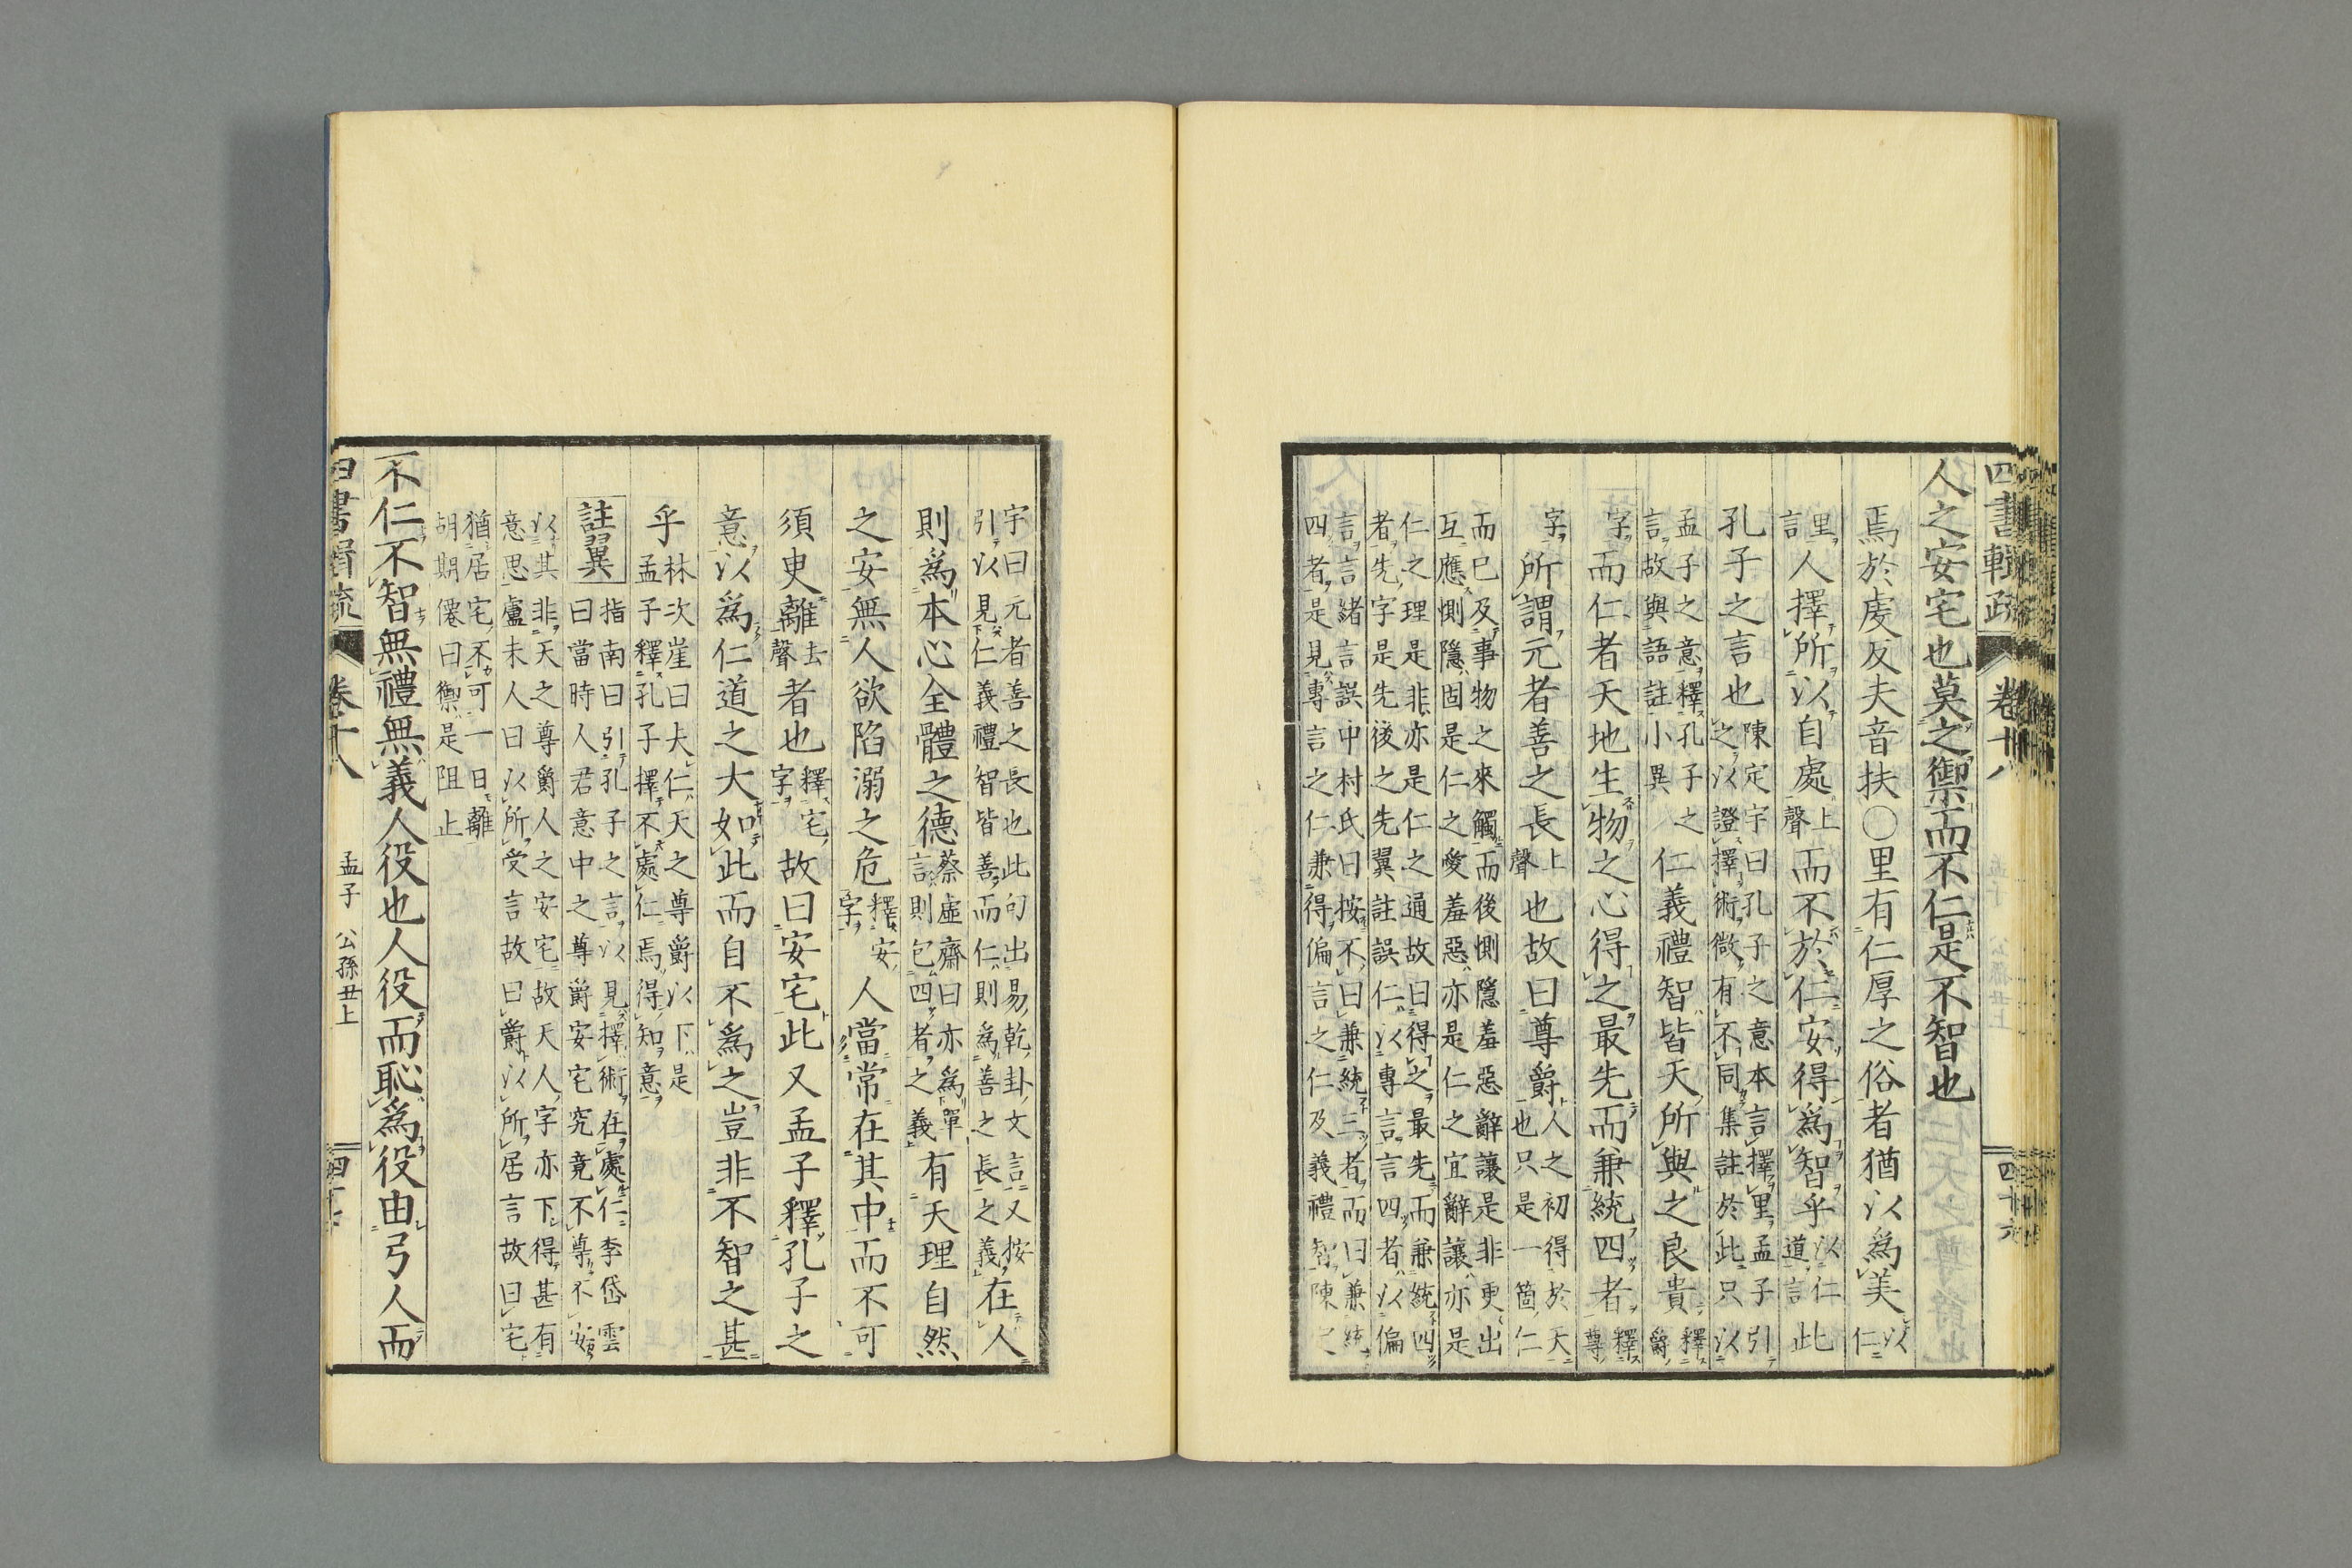 四書輯疏 卷十八 四十六
人之安宅也莫之禦而不仁是不智也
焉於虔反夫音扶○里有仁厚之俗者猶以為美以
仁
里
言人擇所以自處上
聲而不於仁安得為智乎以仁
道言此
孔子之言也陳定宇曰孔子之意本言擇里孟子引
之以證擇術微有不同集註於此只以
孟子之意釋孔子之
言故與語註小異仁義禮智皆天所與之良貴釋
爵
字而仁者天地生物之心得之最先而兼統四者釋
尊
字所謂元者善之長上
聲也故曰尊爵人之初得於天
也只是一箇仁
而已及事物之來觸而後惻隱羞惡辭讓是非更出
互應惻隱固是仁之愛羞惡亦是仁之宜辭讓亦是
仁之理是非亦是仁之通故曰得之最先而兼統四
者先字是先後之先翼註誤仁以專言言四者以偏
言言緒言誤中村氏曰按不曰兼統三者而曰兼統
四者是見專言之仁兼得偏言之仁及義禮智陳定
宇曰元者善之長也此句出易乾卦文言又按
引以見仁義禮智皆善而仁則為善之長之義在人
則為本心全體之德蔡虛齋曰亦為單
言則包四者之義有天理自然
之安無人欲陷溺之危釋安
字人當常在其中而不可
須臾離去
聲者也釋宅
字故曰安宅此又孟子釋孔子之
意以為仁道之大如此而自不為之豈非不智之甚
乎林次崖曰夫仁天之尊爵以下是
孟子釋孔子擇不處仁焉得知意
註翼指南曰引孔子之言以見擇術在處仁李岱雲
曰當時人君意中之尊爵安宅究竟不尊不安
以其非天之尊爵人之安宅故天人字亦下得甚有
意思盧未人曰以所受言故曰爵以所居言故曰宅
猶居宅不可一日離
胡期僊曰禦是阻止
不仁不智無禮無義人役也人役而恥為役由弓人而
四書輯疏 卷十八 孟子 公孫丑上